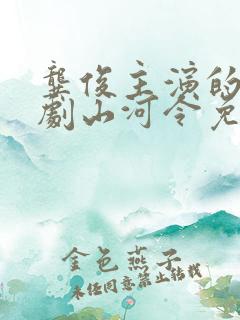 龚俊主演的
劇山河令免
金色燕子
未经同意禁止转载